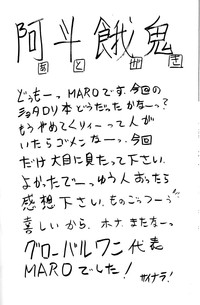 阿斗餓鬼
あとがき
どぅもーっ MAROです。今回の
ショタロリ本どうだったかなーっ?
もうやめてくりィーって人が
いたらゴメンなーっ、今回
だけ大目に見たって下さい。
よかったでーっゆう人あったら
感想下さい。ものごっつーう
喜しいから、ホナまたなーっ
グローバルワン代表
MAROでした!
サイナラ!